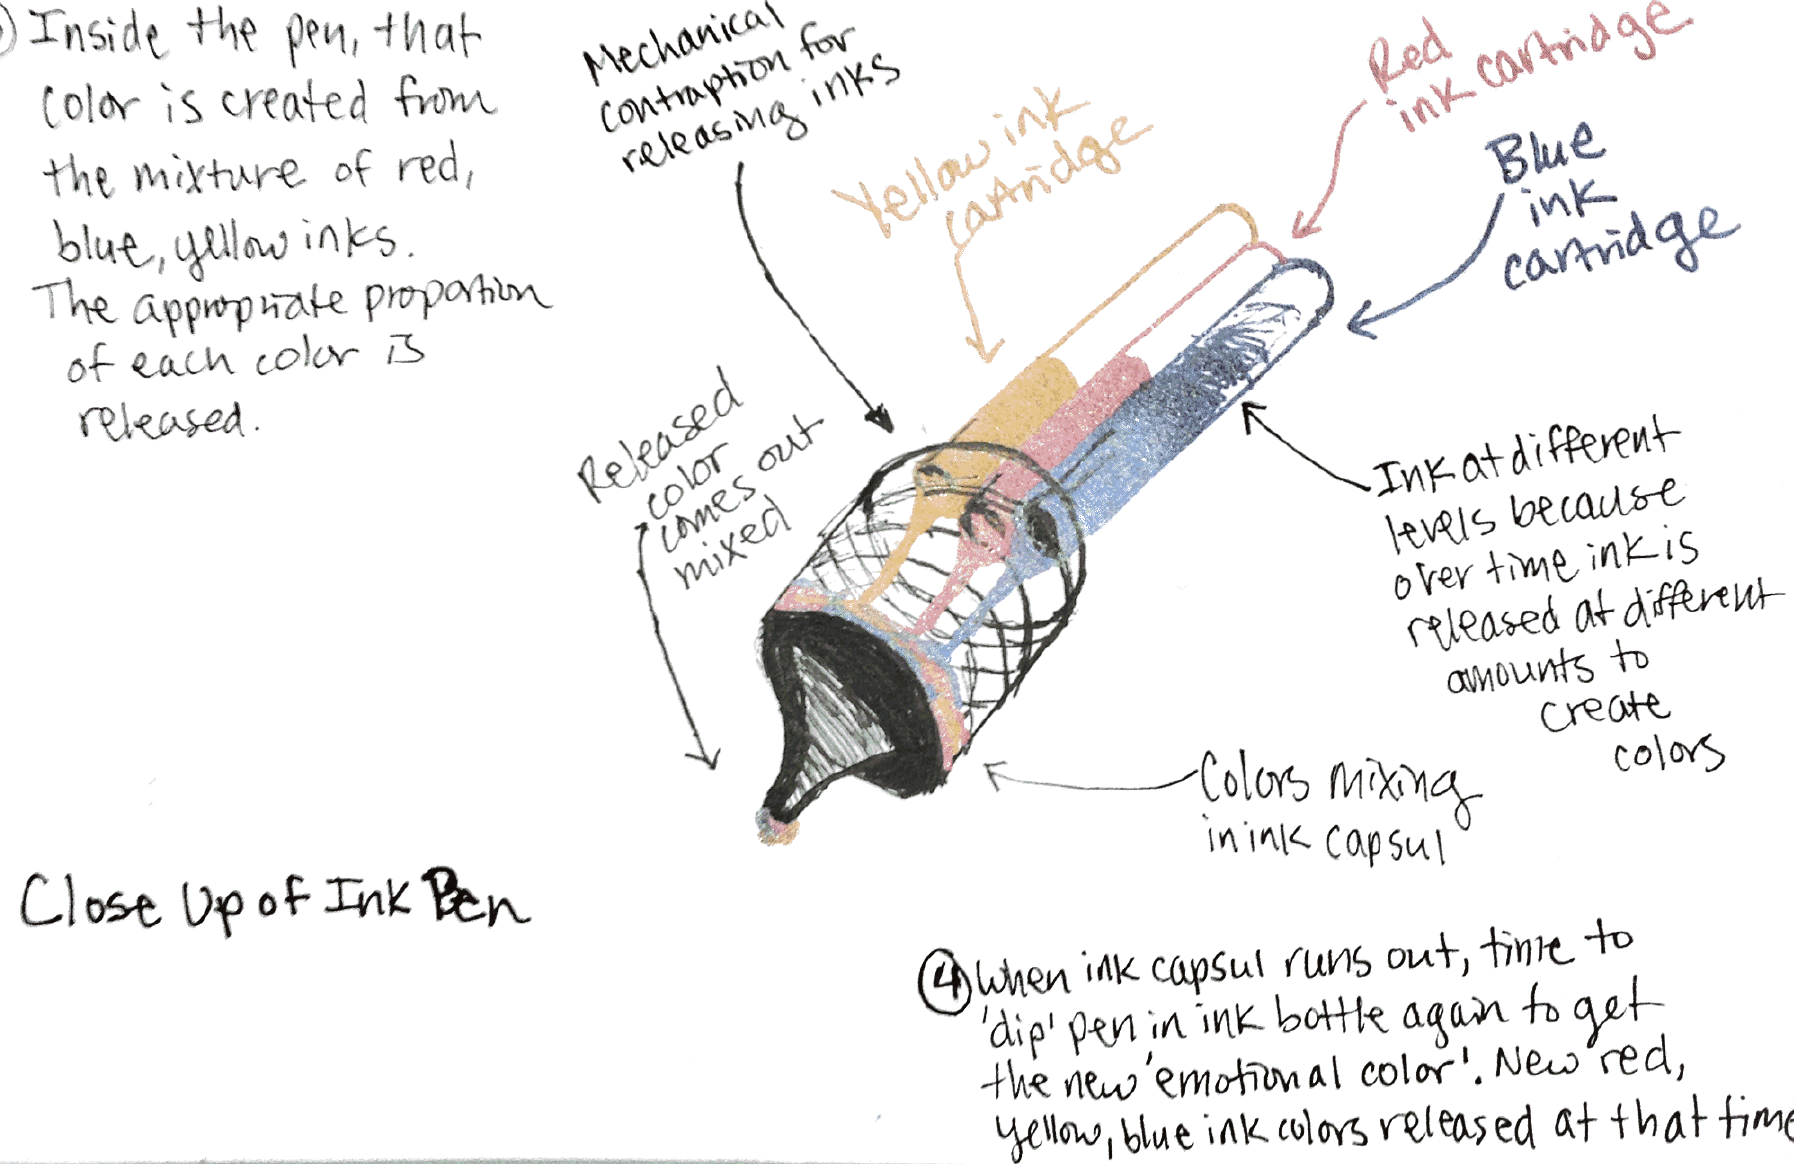 Inside the pen, that
color is created from
the mixture of red,
blue, yellow inks.
The appropriate proportion
of each color is
released.
Mechanical
contraption for
releasing inks
Yellow ink
cartridge
Red
ink cartridge
Blue
ink
cartridge
Released
color
comes out
mixed
Ink at different
levels because
over time ink is
released at different
amounts to
create
colors
Colors mixing
in ink capsul
Close Up of Ink Pen
4 When ink capsul runs out, time to
'dip' pen in ink bottle again to get
the new 'emotional color'. New red,
yellow, blue ink colors released at that time